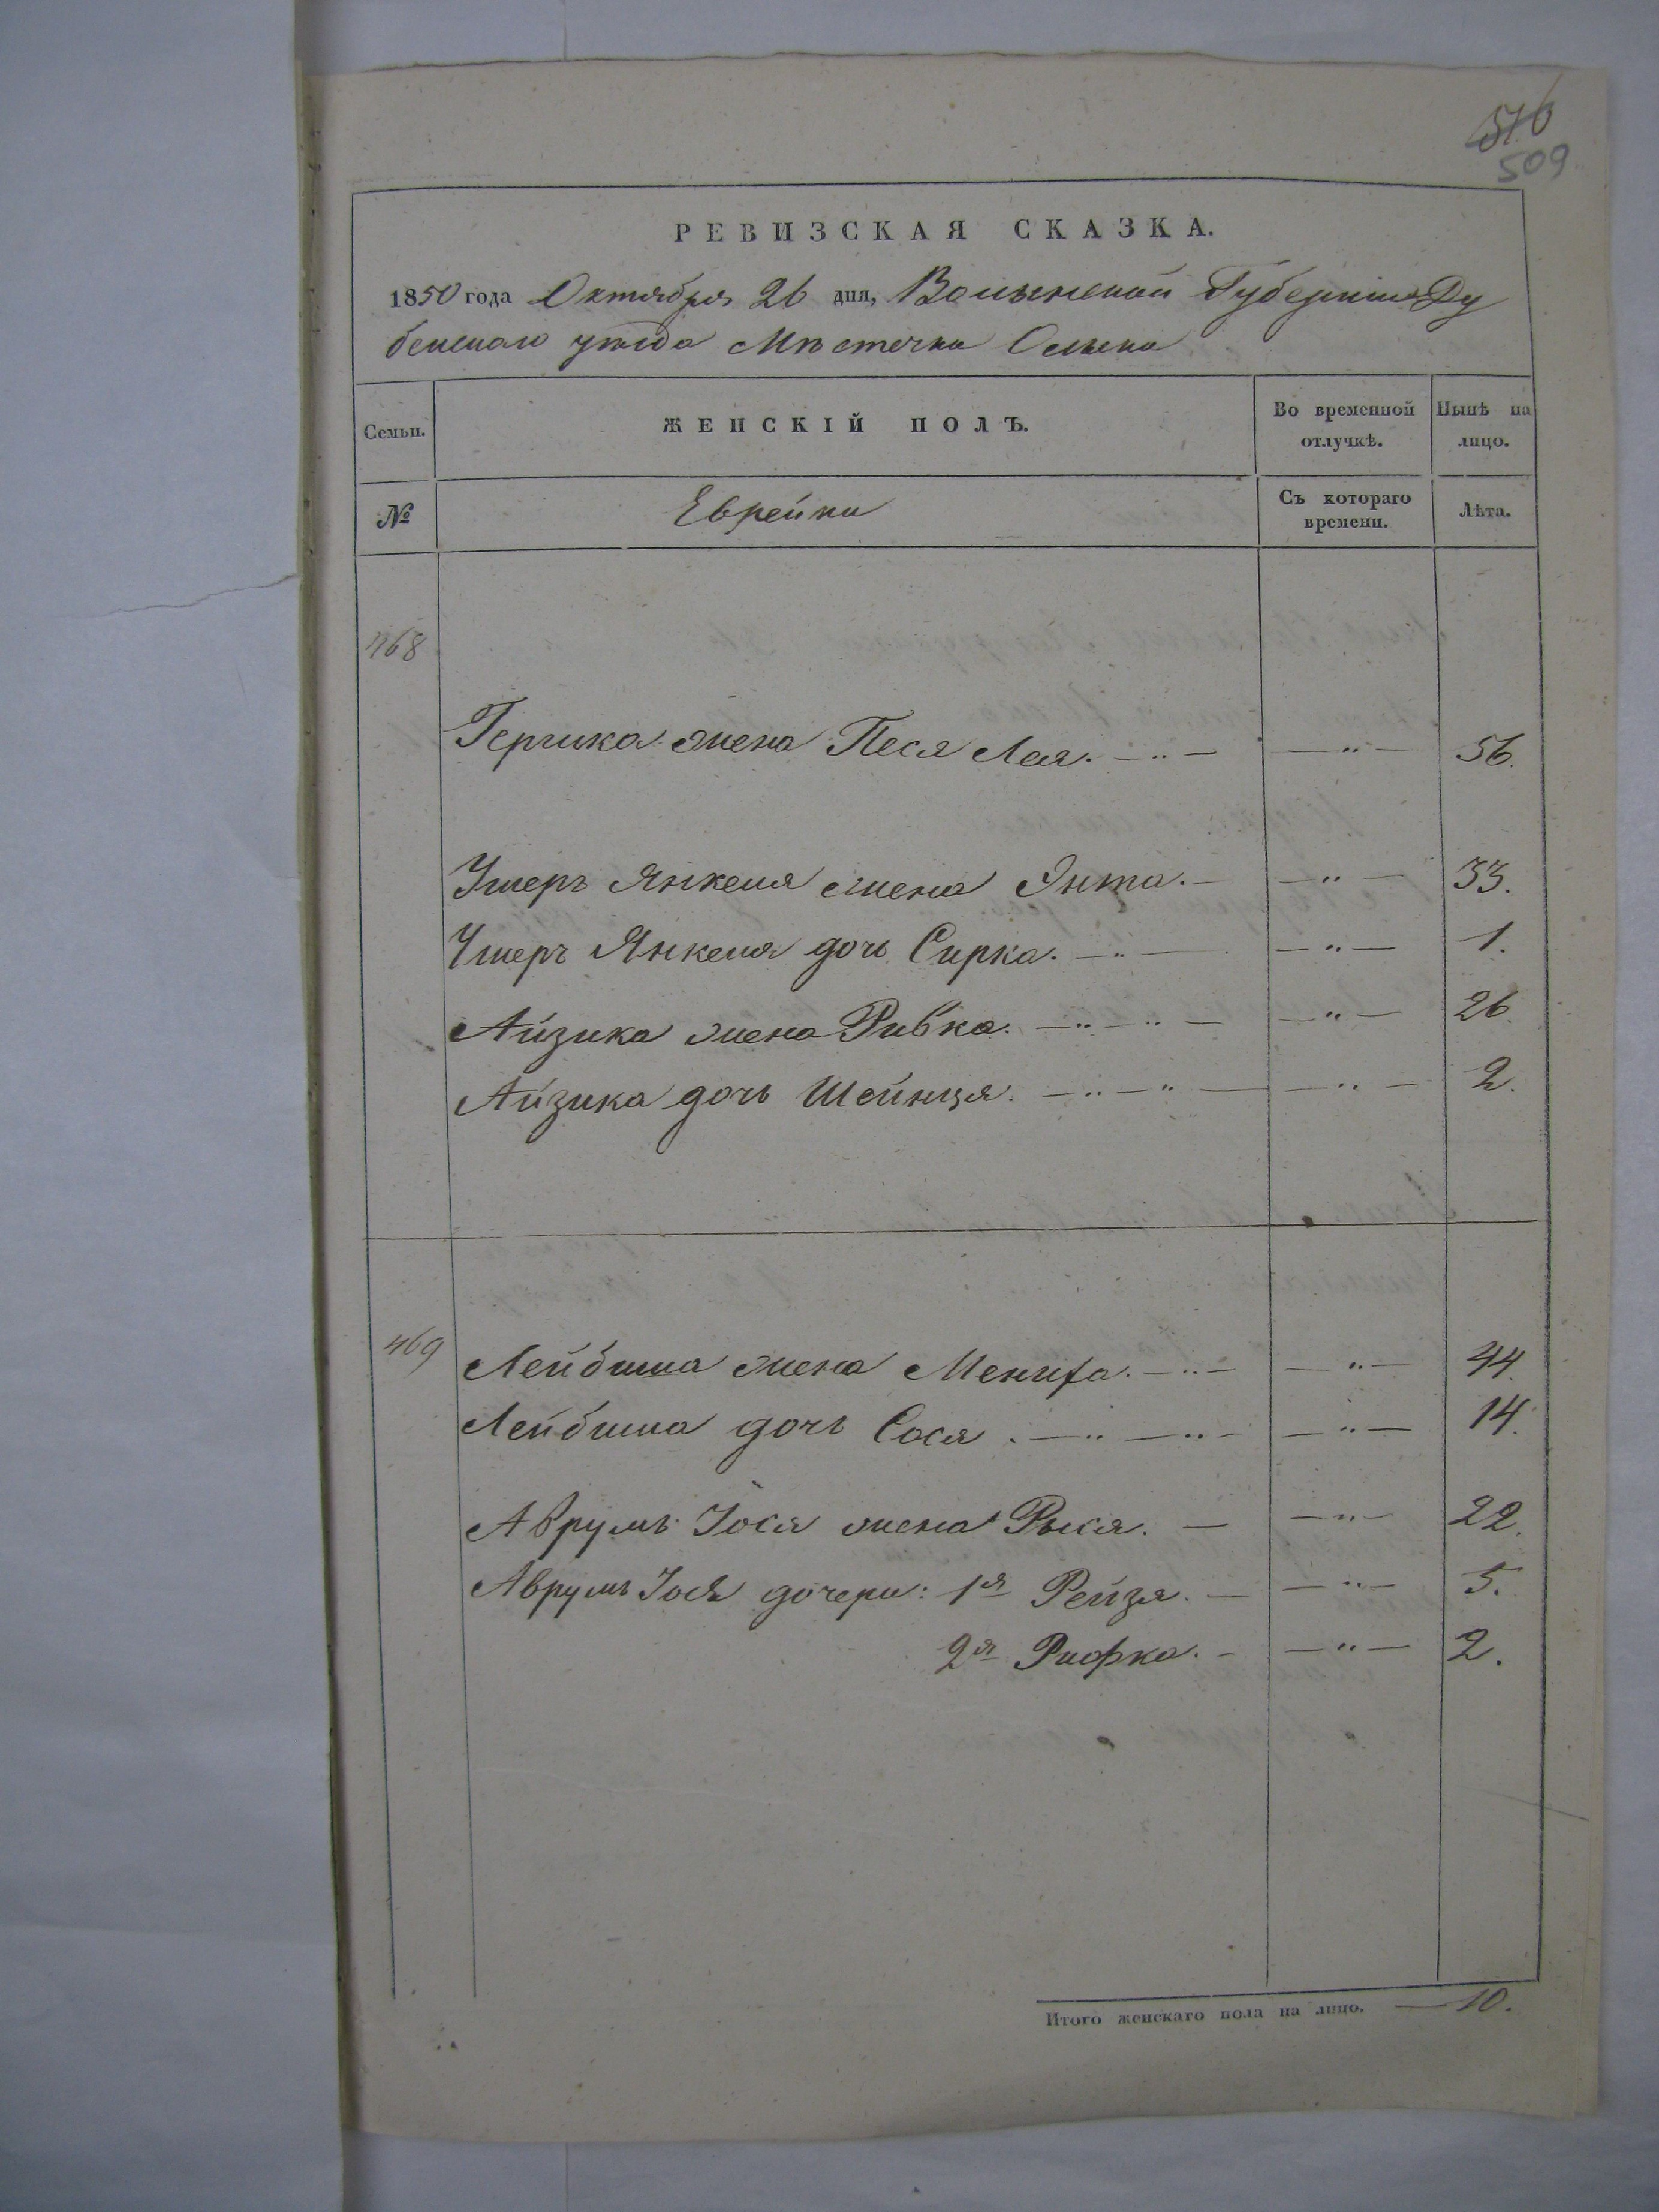 510
509
РЕВИЗСКАЯ СКАЗКА.
1850 года Октября 26 дня, Волынской Губернии Ду
бенскаго уѣзда Мѣстечка Олыка
Семьи. ЖЕНСКІЙ ПОЛЪ. Во временной отлучкѣ. Нынѣ на лицо.
№ Еврейки Съ котораго времени. Лѣта.
468
Гершка жена Песя Лея. —"— —"— 56.
Ушеръ Янкеля жена Энта. — —"— 33.
Ушеръ Янкеля дочь Сирка. —"— —"— 1.
Айзика жена Ривка. —"—"— —"— 26.
Айзика дочь Шейнця. —"—"— —"— 2.
469 Лейбиша жена Мениха. —"— —"— 44.
Лейбиша дочь Сося. —"—"— —"— 14.
Аврумъ Іося жена Рыся. — —"— 22.
Аврумъ Іося дочери: 1я Рейзя. — —"— 5.
2я Рифка. — —"— 2.
Итого женскаго пола на лицо. — 10.